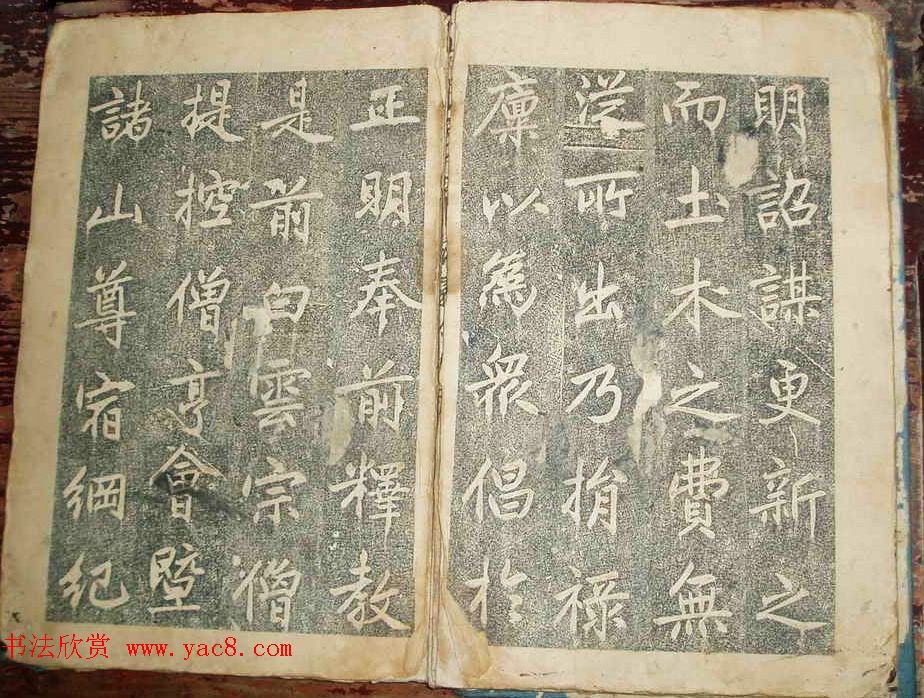 明詔謀更新之
而土木之費無
從所出乃捐祿
廩以為衆倡於
正明奉前釋教
是前白雲宗僧
提控僧亨會暨
諸山尊宿綱紀
书法欣赏 www.yac8.com